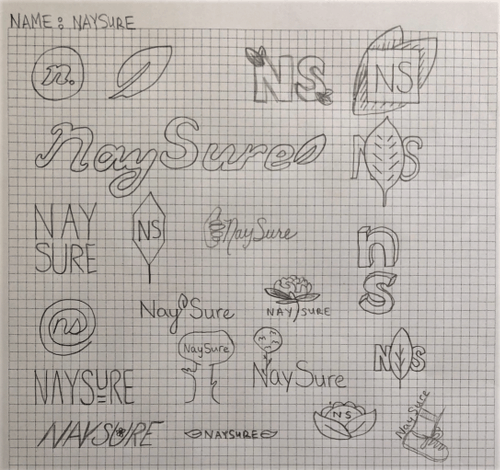 NAME: NAYSURE
n.
NS
NS
NaySure
N S
NAY
SURE
NS
NaySure
n
s
ns
Nay Sure
NAY SURE
NaySure
NAYSURE
NaySure
N S
NAYSURE
NAYSURE
NS
Nay Sure